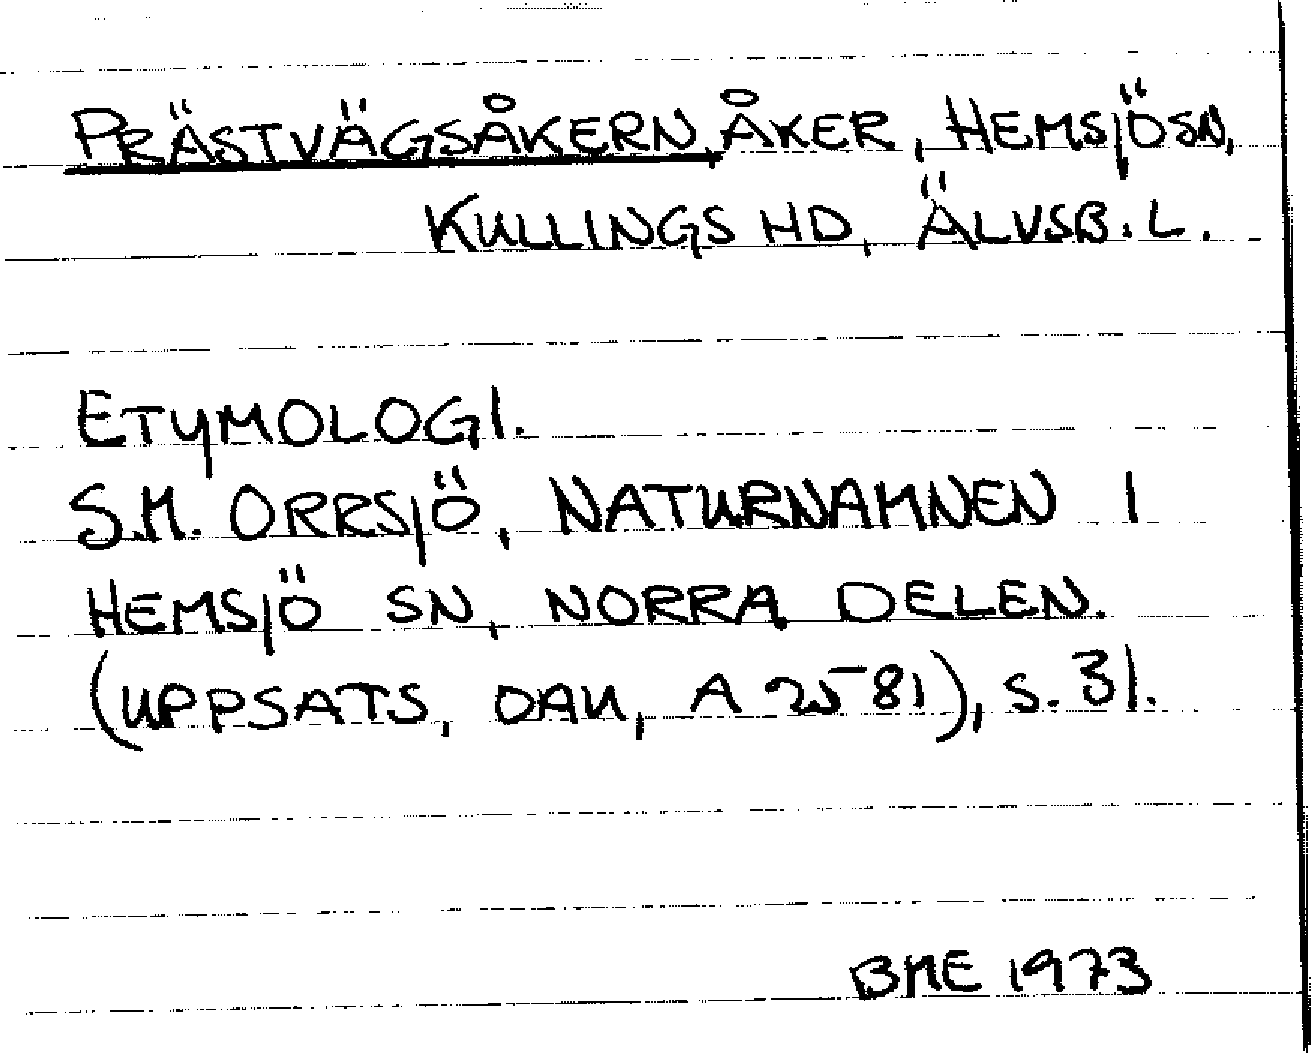 PRÄSTVÄGSÅKERN, ÅKER, HEMSJÖ SN,
KULLINGS HD, ÄLVSB. L.
ETYMOLOGI.
S.M. ORRSJÖ, NATURNAMNEN I
HEMSJÖ SN, NORRA DELEN.
(UPPSATS, DAU, A 2581), S. 31.
BME 1973